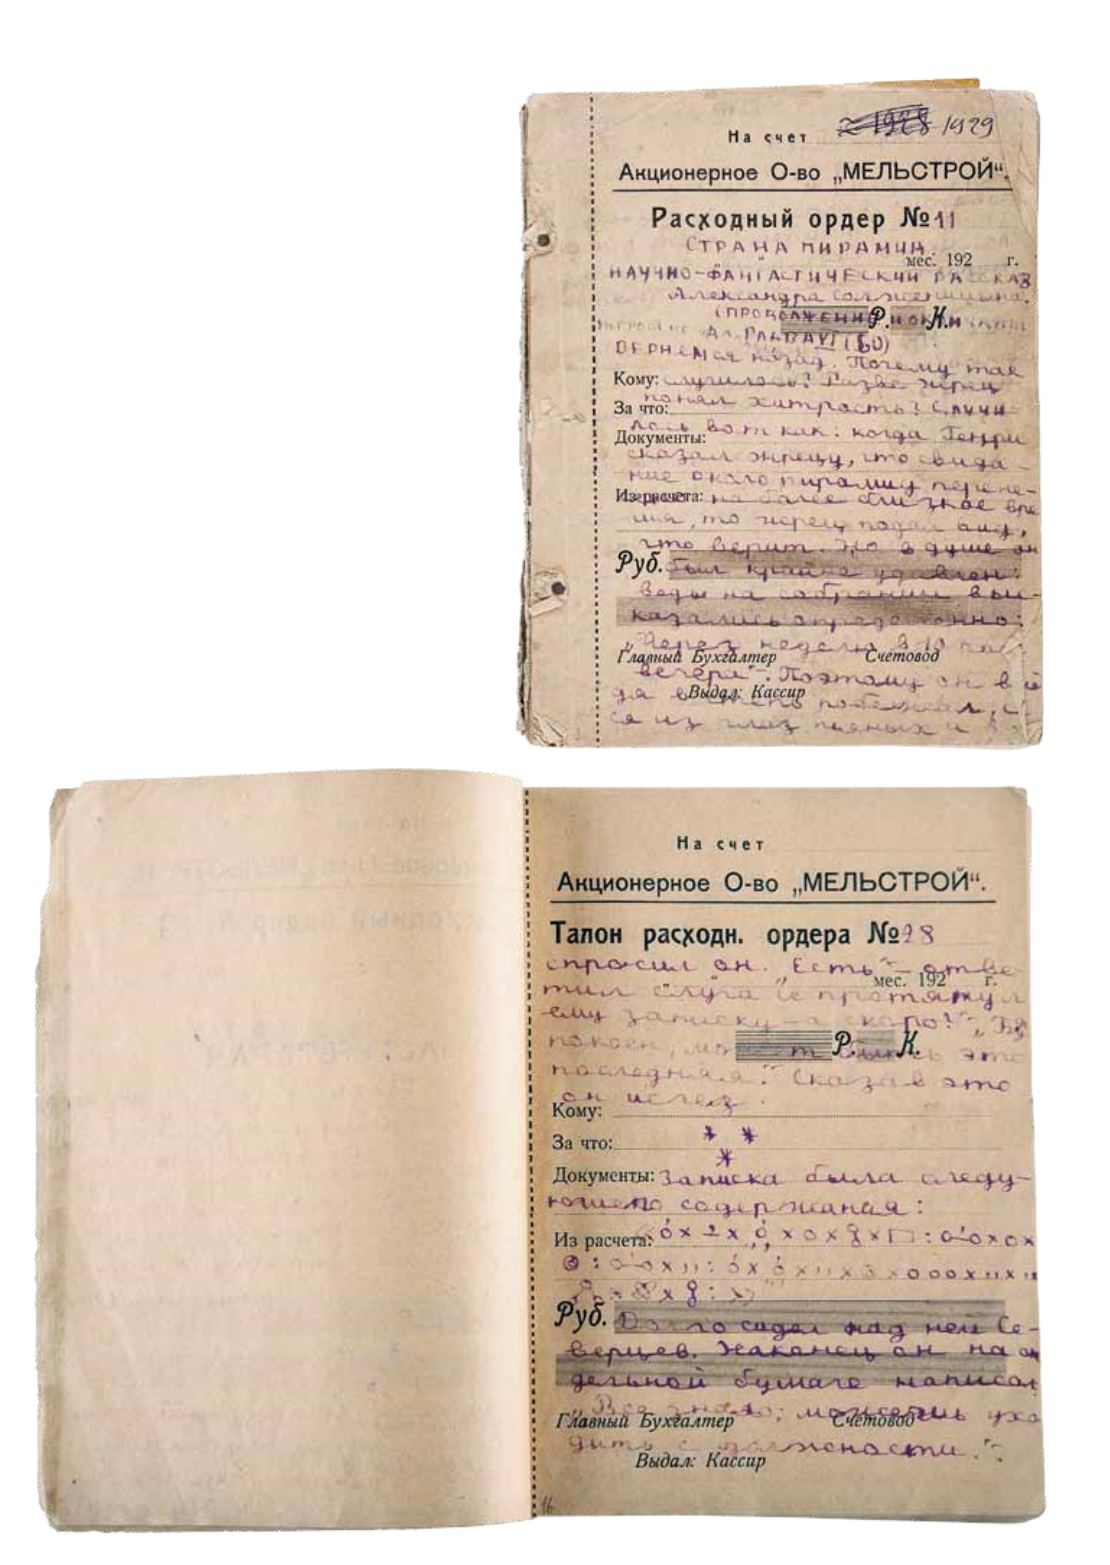 1929
На счет
Акционерное О-во „МЕЛЬСТРОЙ“.
Расходный ордер № 11
СТРАНА ПИРАМИД.
мес. 192 г.
НАУЧНО-ФАНТАСТИЧЕСКИЙ РАССКАЗ
Александра Солженицына.
(ПРОДОЛЖЕНИЕ И ОКОНЧАНИЕ
Р. К.
ВЕРНЕМСЯ назад. Почему так
Кому: случилось? Разве жрец
понял хитрость? Случи
За что:
лось вот как: когда Генри
Документы:
сказал жрецу, что свида-
ние около пирамид перене-
Из расчета: на более близкое вре
мя, то жрец подал вид,
что верит. Но в душе он
Руб. был крайне удивлен:
ведь на собрании выс-
казались определенно:
„Через неделю в 10 час
Главный Бухгалтер Счетовод
вечера“. Поэтому он
Выдал: Кассир
ся из глаз пьяных и
На счет
Акционерное О-во „МЕЛЬСТРОЙ“.
Талон расходн. ордера № 28
спросил он. „Есть“ – отве-
мес. 192 г.
тил слуга и протянул
ему записку – а скоро?“ „
Р. К.
покоен, может быть это
последняя.“ Сказав это
он исчез.
Кому:
За что: * *
*
Документы: Записка была следу-
ющего содержания:
Из расчета:
Руб. Долго сидел над ней Се-
верцев. Наконец он на от
дельной бумаге написал
„Все знаю; можешь ухо
Главный Бухгалтер Счетовод
дить с должности.“
Выдал: Кассир
16